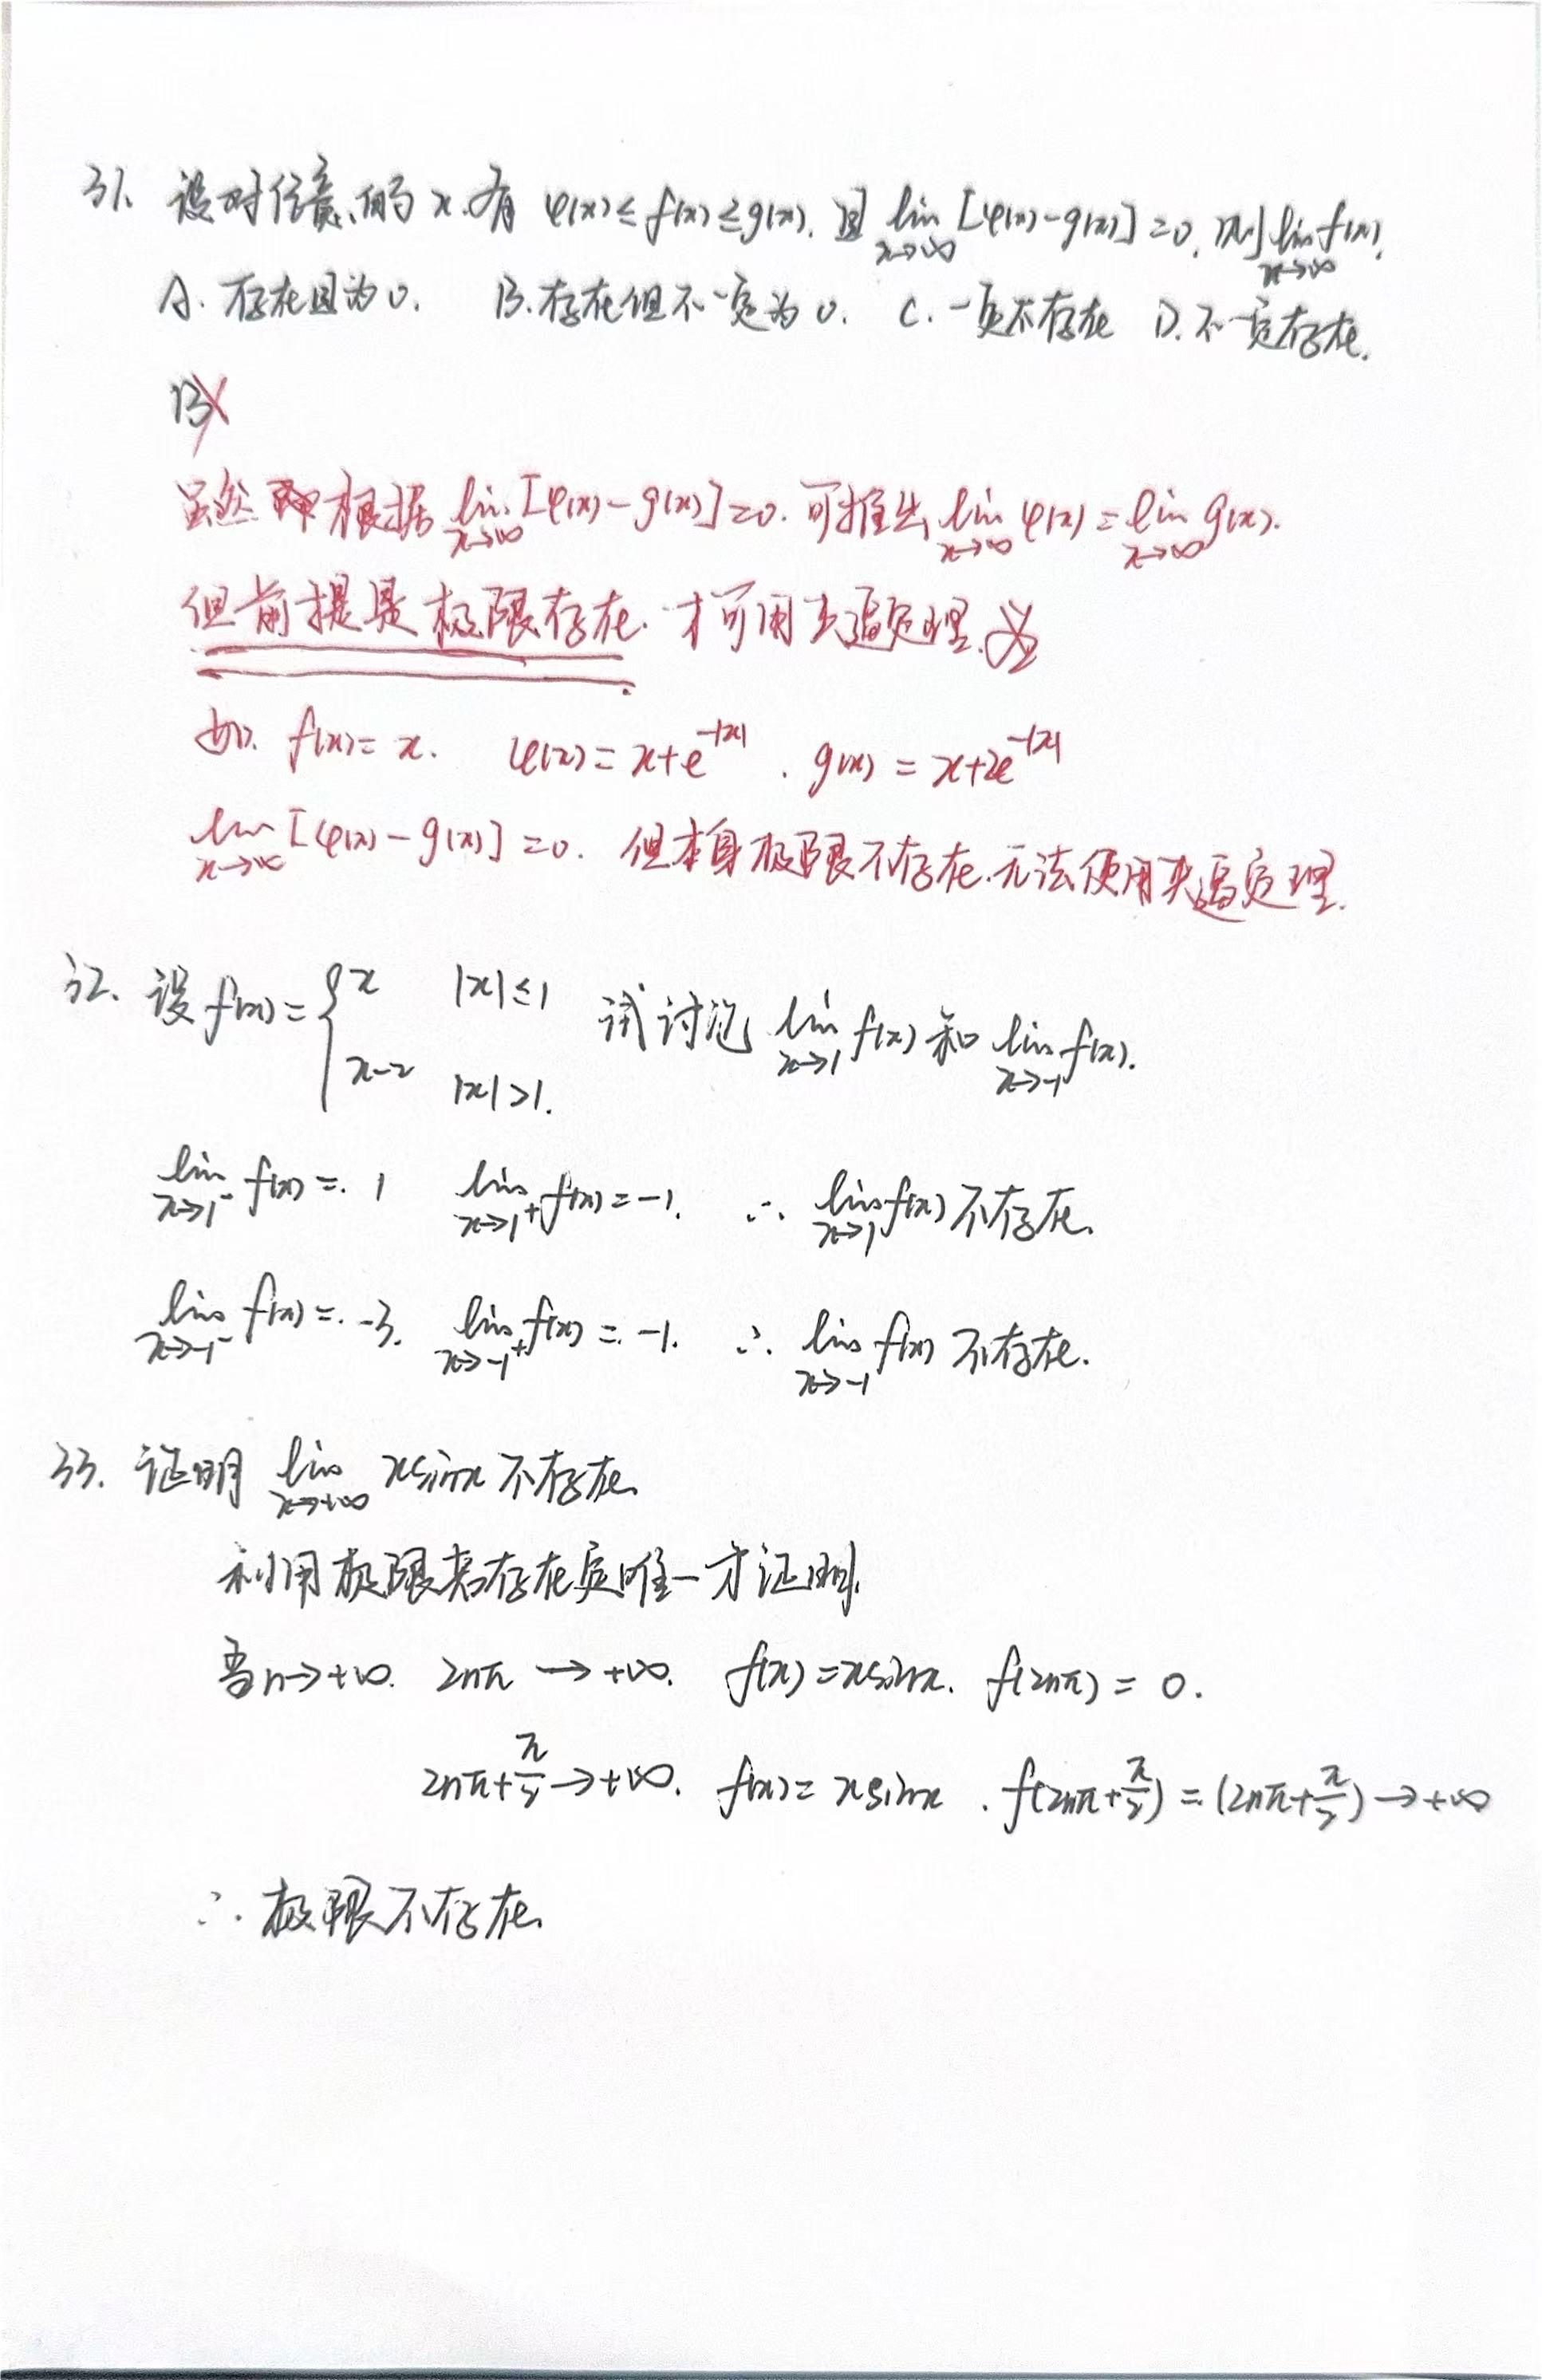 31. 设对任意的 x. 有 φ(x) ≤ f(x) ≤ g(x). 且 lim x→∞ [φ(x) - g(x)] = 0. 则 lim x→∞ f(x).
A. 存在且为 0. B. 存在但不一定为 0. C. 一定不存在 D. 不一定存在.
B ×
虽然 根据 lim x→∞ [φ(x) - g(x)] = 0. 可推出 lim x→∞ φ(x) = lim x→∞ g(x).
但前提是极限存在. 才可用夹逼定理.
如. f(x) = x. φ(x) = x + e^{-|x|} . g(x) = x + 2e^{-|x|}
lim x→∞ [φ(x) - g(x)] = 0. 但本身极限不存在. 无法使用夹逼定理.
32. 设 f(x) = { x |x| ≤ 1 试讨论 lim x→1 f(x) 和 lim x→-1 f(x).
x-2 |x| > 1.
lim x→1⁻ f(x) = 1 lim x→1⁺ f(x) = -1. ∴ lim x→1 f(x) 不存在.
lim x→-1⁻ f(x) = -3. lim x→-1⁺ f(x) = -1. ∴ lim x→-1 f(x) 不存在.
33. 证明 lim x→+∞ xsinx 不存在.
利用极限若存在定唯一才证明.
当 n→+∞. 2nπ → +∞. f(x) = xsinx. f(2nπ) = 0.
2nπ + π/2 → +∞. f(x) = xsinx . f(2nπ + π/2) = (2nπ + π/2) → +∞
∴ 极限不存在.